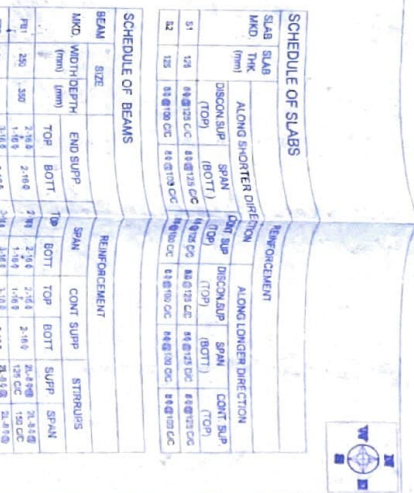 SCHEDULE OF SLABS
SLAB MKD.
SLAB THK (mm)
REINFORCEMENT
ALONG SHORTER DIRECTION
ALONG LONGER DIRECTION
DISCON.SUP (TOP)
SPAN (BOTT.)
CONT SUP (TOP)
DISCON.SUP (TOP)
SPAN (BOTT.)
CONT.SUP. (TOP)
S1 125 8ϕ@125 C/C 8ϕ@125 C/C 8ϕ@125 C/C 8ϕ@125 C/C 8ϕ@125 C/C 8ϕ@125 C/C
S2 125 8ϕ@100 C/C 8ϕ@100 C/C 8ϕ@100 C/C 8ϕ@100 C/C 8ϕ@100 C/C 8ϕ@100 C/C
SCHEDULE OF BEAMS
BEAM MKD.
SIZE
WIDTH (mm)
DEPTH (mm)
REINFORCEMENT
END SUPP
SPAN
CONT SUPP
STIRRUPS
TOP BOTT. TOP BOTT. TOP BOTT SUPP SPAN
PB1 250 350 2-16ϕ 2-16ϕ 2-16ϕ 2-16ϕ 2-16ϕ 2-16ϕ 2L-8ϕ@ 2L-8ϕ@
1-16ϕ 1-16ϕ 1-16ϕ 125 C/C 150 C/C
N
W
E
S